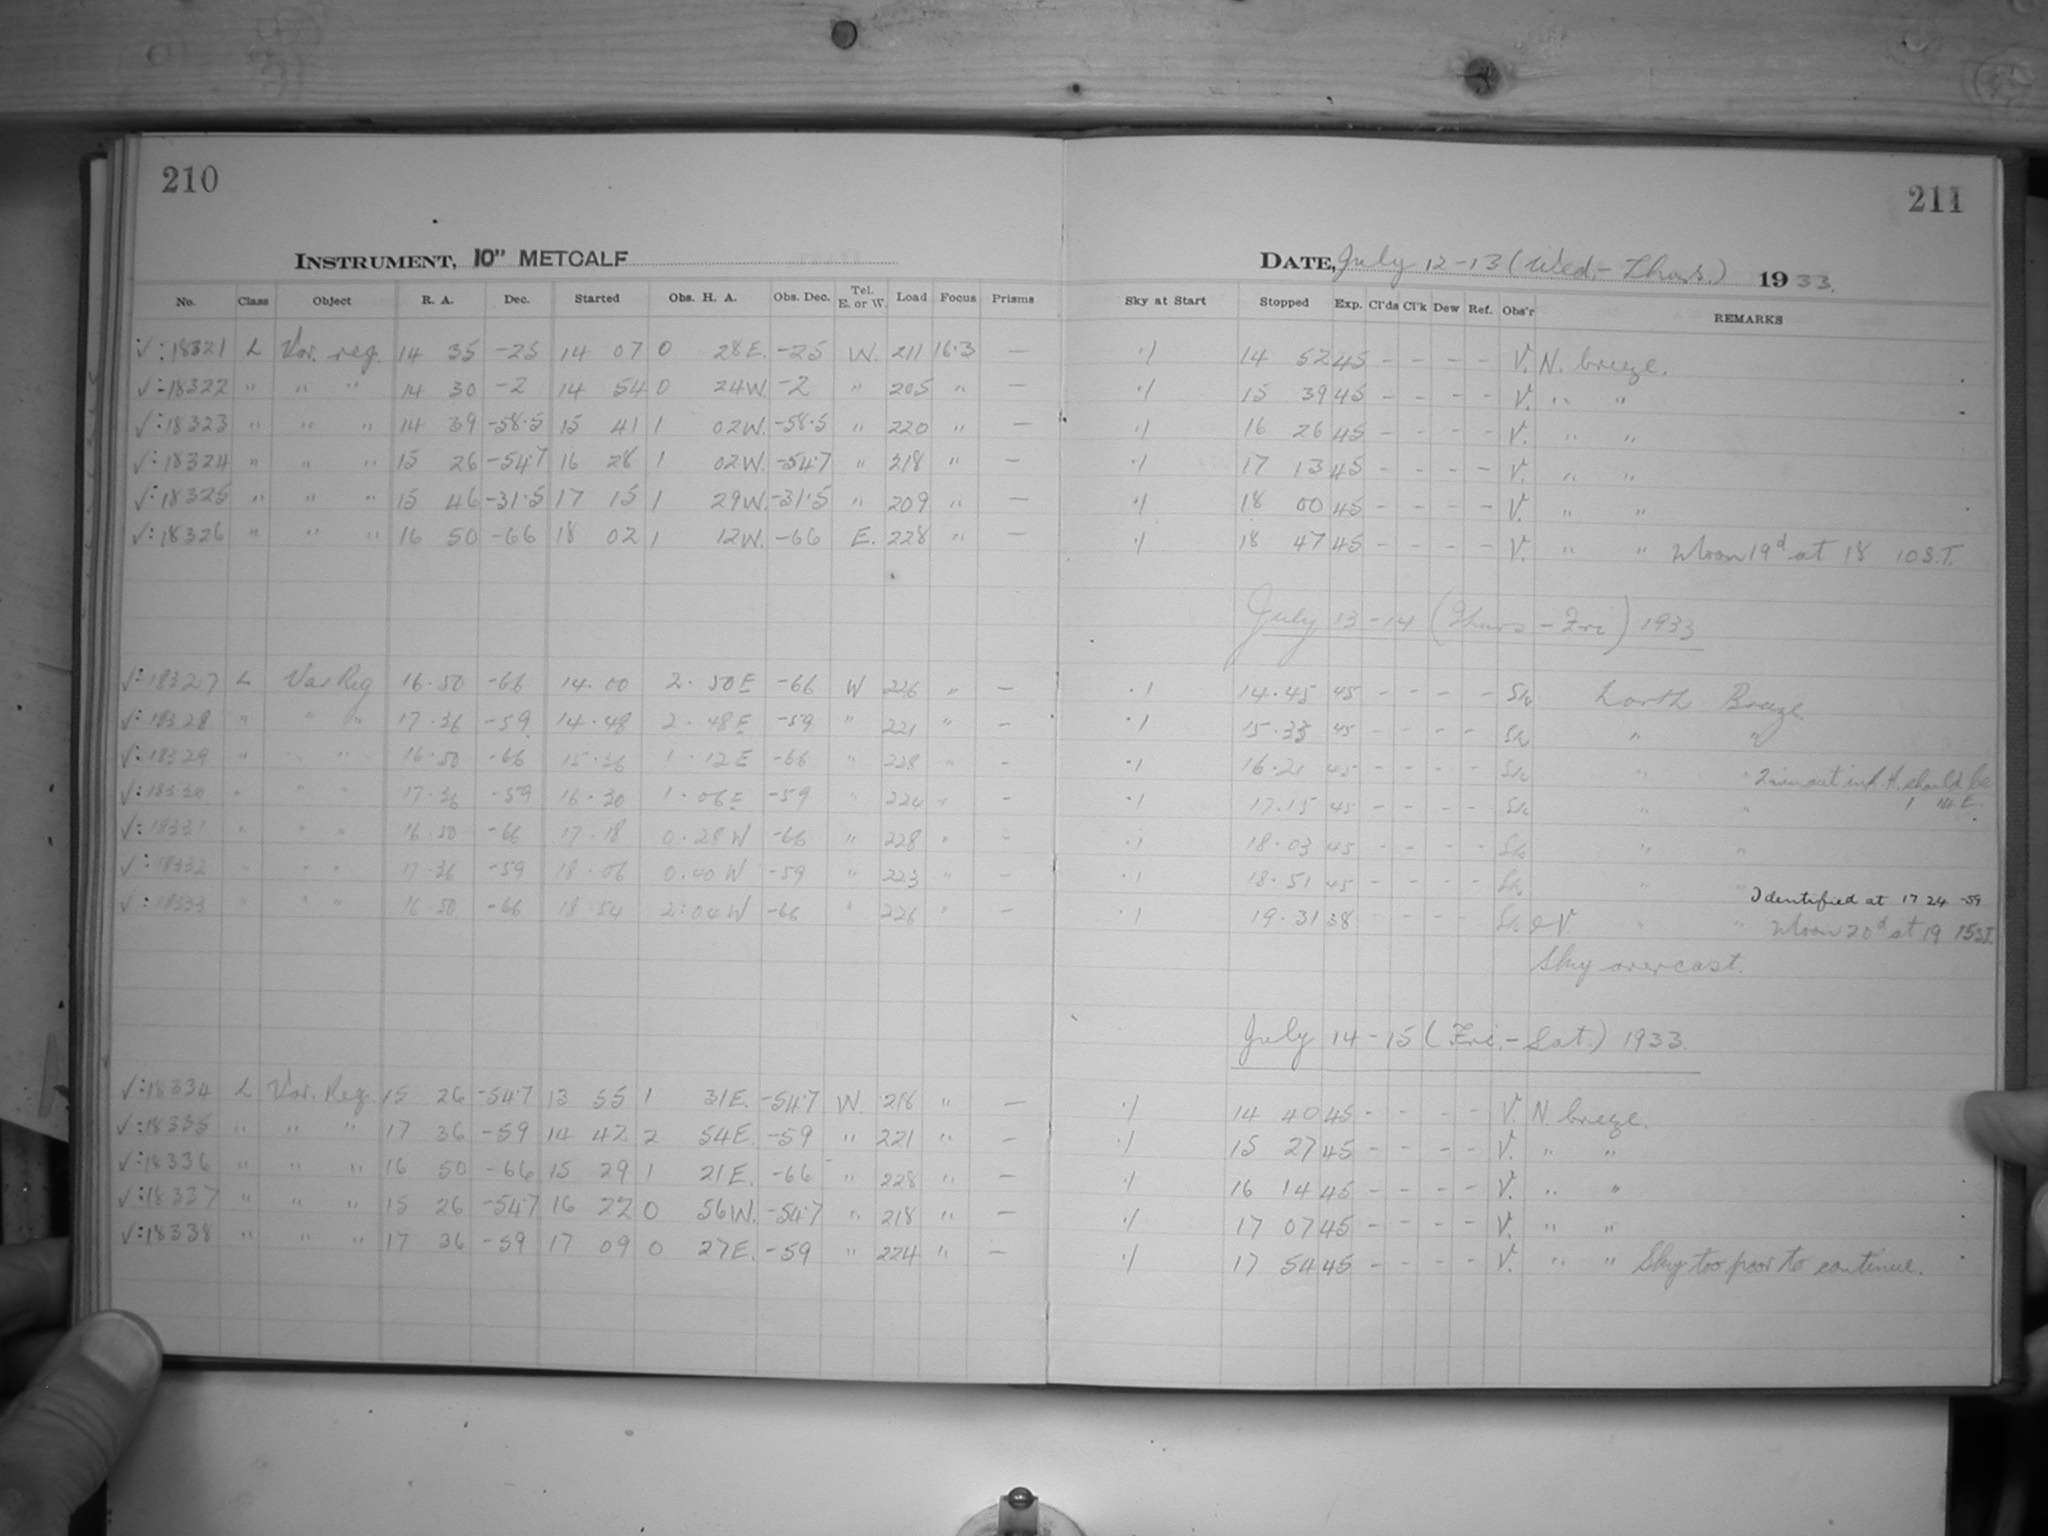 210
211
INSTRUMENT, 10" METCALF
DATE, July 12-13 (Wed.-Thurs.) 1933.
No. Class Object R. A. Dec. Started Obs. H. A. Obs. Dec. Tel. E. or W. Load Focus Prisms Sky at Start Stopped Exp. Cl'ds Cl'k Dew Ref. Obs'r REMARKS
√: 18321 L Var. reg. 14 35 -25 14 07 0 28E. -25 W. 211 16.3 — ·/ 14 52 45 - - - - V. N. breeze.
√: 18322 " " " 14 30 -2 14 54 0 24W. -2 " 205 " — ·/ 15 39 45 - - - - V. " "
√: 18323 " " " 14 39 -58.5 15 41 1 02W. -58.5 " 220 " — ·/ 16 26 45 - - - - V. " "
√: 18324 " " " 15 26 -54.7 16 28 1 02W. -54.7 " 218 " — ·/ 17 13 45 - - - - V. " "
√: 18325 " " " 15 46 -31.5 17 15 1 29W. -31.5 " 209 " — ·/ 18 00 45 - - - - V. " "
√: 18326 " " " 16 50 -66 18 02 1 12W. -66 E. 228 " — ·/ 18 47 45 - - - - V. " " Moon 19d at 18 10 S.T.
July 13-14 (Thurs-Fri) 1933
√: 18327 L Var Reg 16.50 -66 14.00 2.50E -66 W 226 " — ·1 14.45 45 - - - - North Breeze
√: 18328 " " " 17.36 -59 14.48 2.48E -59 " 221 " — ·1 15.33 45 - - - - " "
√: 18329 " " " 16.50 -66 15.36 1.12E -66 " 228 " - ·1 16.21 45 - - - - " " should be
1 14 E.
√: 18330 " " " 17.36 -59 16.30 1.06E -59 " 224 " — ·1 17.15 45 - - - - " "
√: 18331 " " " 16.50 -66 17.18 0.28W -66 " 228 " - ·1 18.03 45 - - - - " "
√: 18332 " " " 17.36 -59 18.06 0.40W -59 " 223 " - ·1 18.51 45 - - - - " "
Identified at 17 24 -59
√: 18333 " " " 16.50 -66 18.54 2:04W -66 " 226 " — ·1 19.31 38 & V. " " Moon 20d at 19 15 S.T.
Sky overcast.
July 14-15 (Fri.-Sat.) 1933.
√: 18334 L Var. Reg. 15 26 -54.7 13 55 1 31E. -54.7 W. 218 " — ·/ 14 40 45 - - - - V. N. breeze.
√: 18335 " " " 17 36 -59 14 42 2 54E. -59 " 221 " — ·/ 15 27 45 - - - - V. " "
√: 18336 " " " 16 50 -66 15 29 1 21E. -66 " 228 " — ·/ 16 14 45 - - - - V. " "
√: 18337 " " " 15 26 -54.7 16 22 0 56W. -54.7 " 218 " — ·/ 17 07 45 - - - - V. " "
√: 18338 " " " 17 36 -59 17 09 0 27E. -59 " 224 " — ·/ 17 54 45 - - - - V. " " Sky too poor to continue.